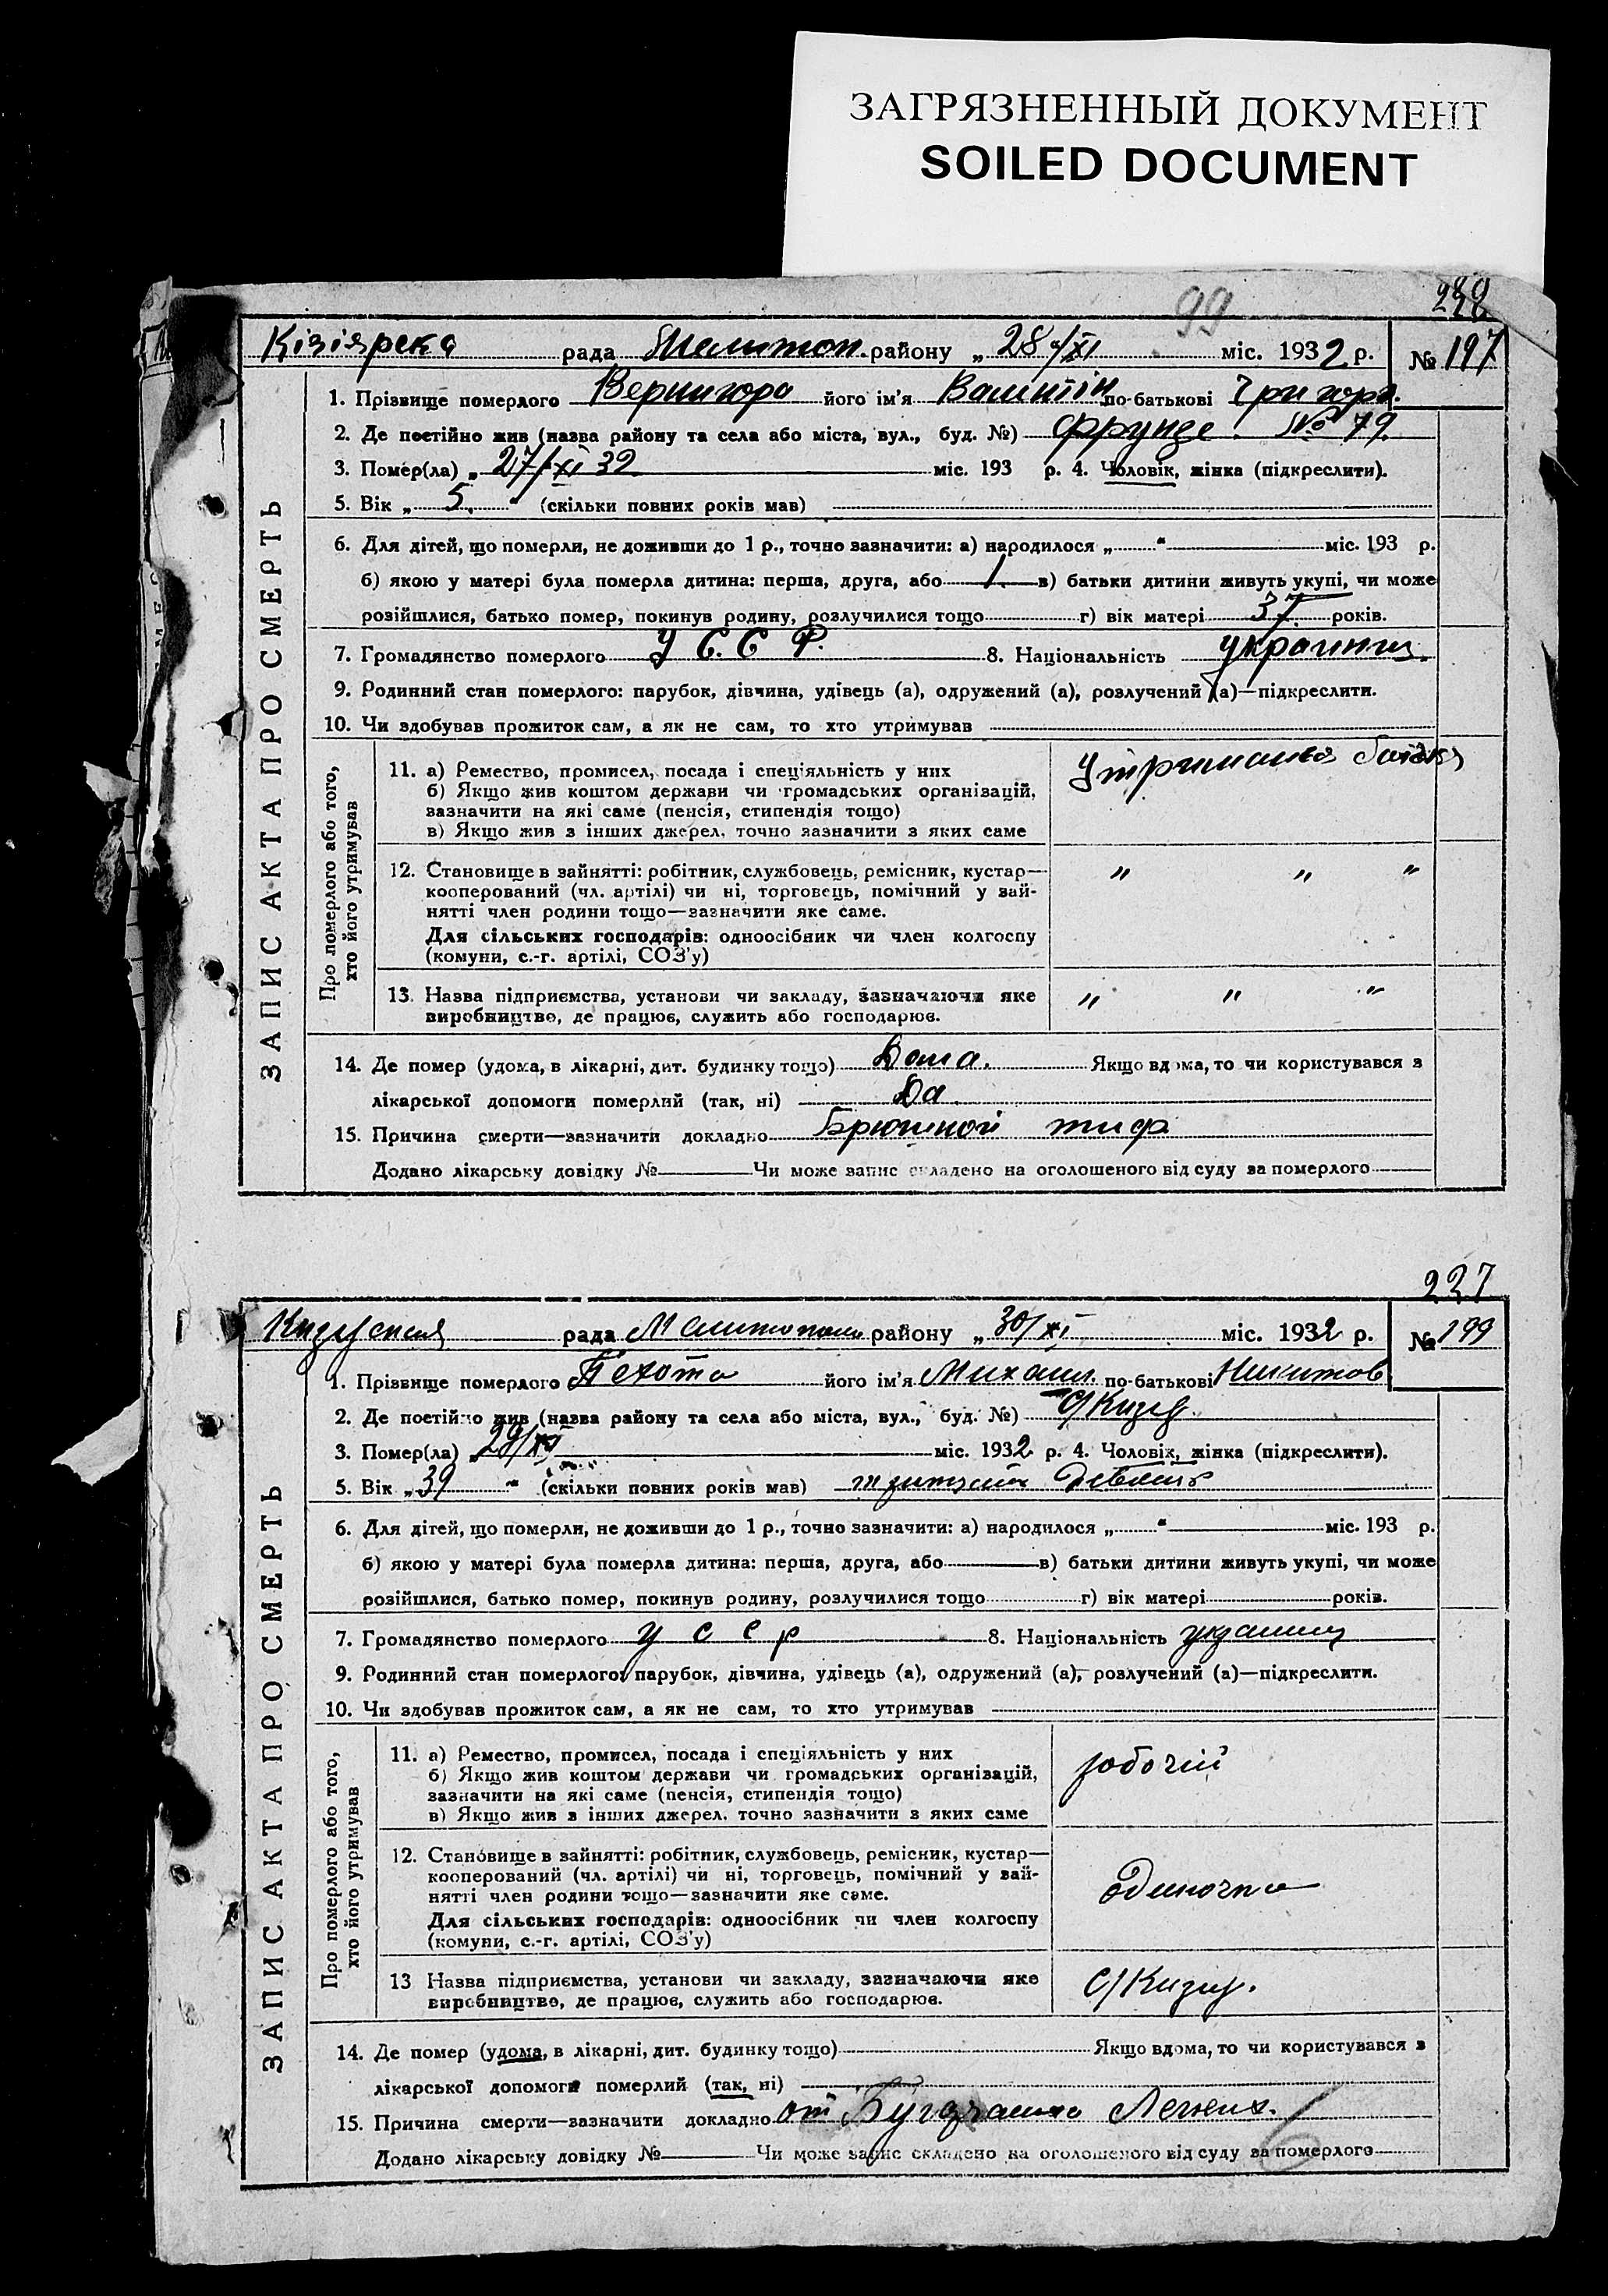 ЗАГРЯЗНЕННЫЙ ДОКУМЕНТ
SOILED DOCUMENT
99
Кізіярска рада Мелитоп. району „ 28/XI міс. 1932 р. № 197
1. Прізвище померлого Вернигора його ім'я Валнтін по-батькові Григоров.
2. Де постійно жив (назва району та села або міста, вул., буд. №) Фрунзе. № 79.
3. Помер(ла) „ 27/XI 32 міс. 193 р. 4. Чоловік, жінка (підкреслити).
5. Вік „ 5. " (скільки повних років мав)
6. Для дітей, що померли, не доживши до 1 р., точно зазначити: а) народилося „ " міс. 193 р.
б) якою у матері була померла дитина: перша, друга, або 1. в) батьки дитини живуть укупі, чи може
розійшлися, батько помер, покинув родину, розлучилися тощо г) вік матері 37. років.
7. Громадянство померлого У С. С Р. 8. Національність украинец.
9. Родинний стан померлого: парубок, дівчина, удівець (а), одружений (а), розлучений (а)—підкреслити.
10. Чи здобував прожиток сам, а як не сам, то хто утримував
ЗАПИС АКТА ПРО СМЕРТЬ
Про померлого або того,
хто його утримував
11. а) Ремество, промисел, посада і спеціяльність у них
б) Якщо жив коштом держави чи громадських організацій,
зазначити на які саме (пенсія, стипендія тощо)
в) Якщо жив з інших джерел, точно зазначити з яких саме
Утримання батька
12. Становище в зайнятті: робітник, службовець, ремісник, кустар—
кооперований (чл. артілі) чи ні, торговець, помічний у зай-
нятті член родини тощо—зазначити яке саме.
Для сільських господарів: одноосібник чи член колгоспу
(комуни, с.-г. артілі, СОЗ'у)
" " "
13. Назва підприємства, установи чи закладу, зазначаючи яке
виробництво, де працює, служить або господарює.
" " "
14. Де помер (удома, в лікарні, дит. будинку тощо) Дома. Якщо вдома, то чи користувався з
лікарської допомоги померлий (так, ні) Да.
15. Причина смерти—зазначити докладно Брюшной тиф
Додано лікарську довідку № Чи може запис складено на оголошеного від суду за померлого
227
рада Мелитопол району „ 30/XI міс. 1932 р. № 199
1. Прізвище померлого Пехота його ім'я Михаил по-батькові Никитов
2. Де постійно жив (назва району та села або міста, вул., буд. №) с/Кизир.
3. Помер(ла) 29/XI міс. 1932 р. 4. Чоловік, жінка (підкреслити).
5. Вік „ 39 " (скільки повних років мав) тритцать девять
6. Для дітей, що померли, не доживши до 1 р., точно зазначити: а) народилося „ " міс. 193 р.
б) якою у матері була померла дитина: перша, друга, або в) батьки дитини живуть укупі, чи може
розійшлися, батько помер, покинув родину, розлучилися тощо г) вік матері років.
7. Громадянство померлого У С С Р 8. Національність украинец
9. Родинний стан померлого: парубок, дівчина, удівець (а), одружений (а), розлучений (а)—підкреслити.
10. Чи здобував прожиток сам, а як не сам, то хто утримував
ЗАПИС АКТА ПРО СМЕРТЬ
Про померлого або того,
хто його утримував
11. а) Ремество, промисел, посада і спеціяльність у них
б) Якщо жив коштом держави чи громадських організацій,
зазначити на які саме (пенсія, стипендія тощо)
в) Якщо жив з інших джерел, точно зазначити з яких саме
робочий
12. Становище в зайнятті: робітник, службовець, ремісник, кустар—
кооперований (чл. артілі) чи ні, торговець, помічний у зай-
нятті член родини тощо—зазначити яке саме.
Для сільських господарів: одноосібник чи член колгоспу
(комуни, с.-г. артілі, СОЗ'у)
одиночка
13 Назва підприємства, установи чи закладу, зазначаючи яке
виробництво, де працює, служить або господарює.
с/Кизир.
14. Де помер (удома, в лікарні, дит. будинку тощо) Якщо вдома, то чи користувався з
лікарської допомоги померлий (так, ні)
15. Причина смерти—зазначити докладно от Бугорчатка Легких.
Додано лікарську довідку № Чи може запис складено на оголошеного від суду за померлого